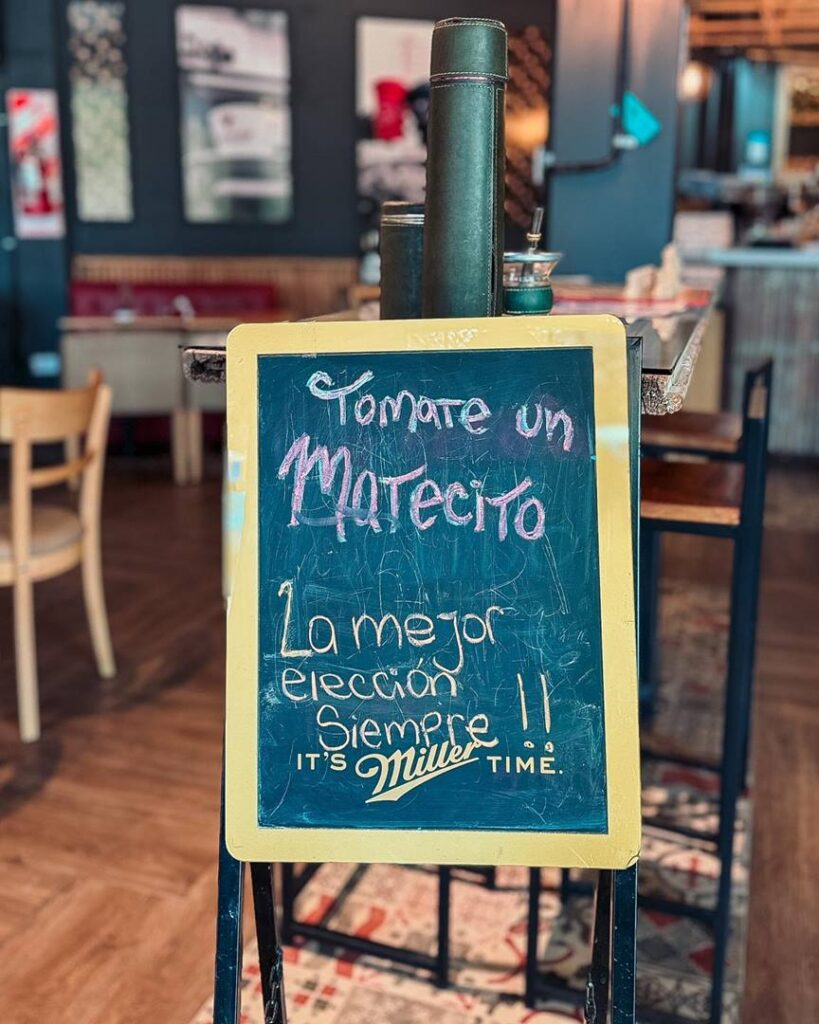 Tomate un
Matecito
La mejor
elección
Siempre !!
IT'S Miller TIME.